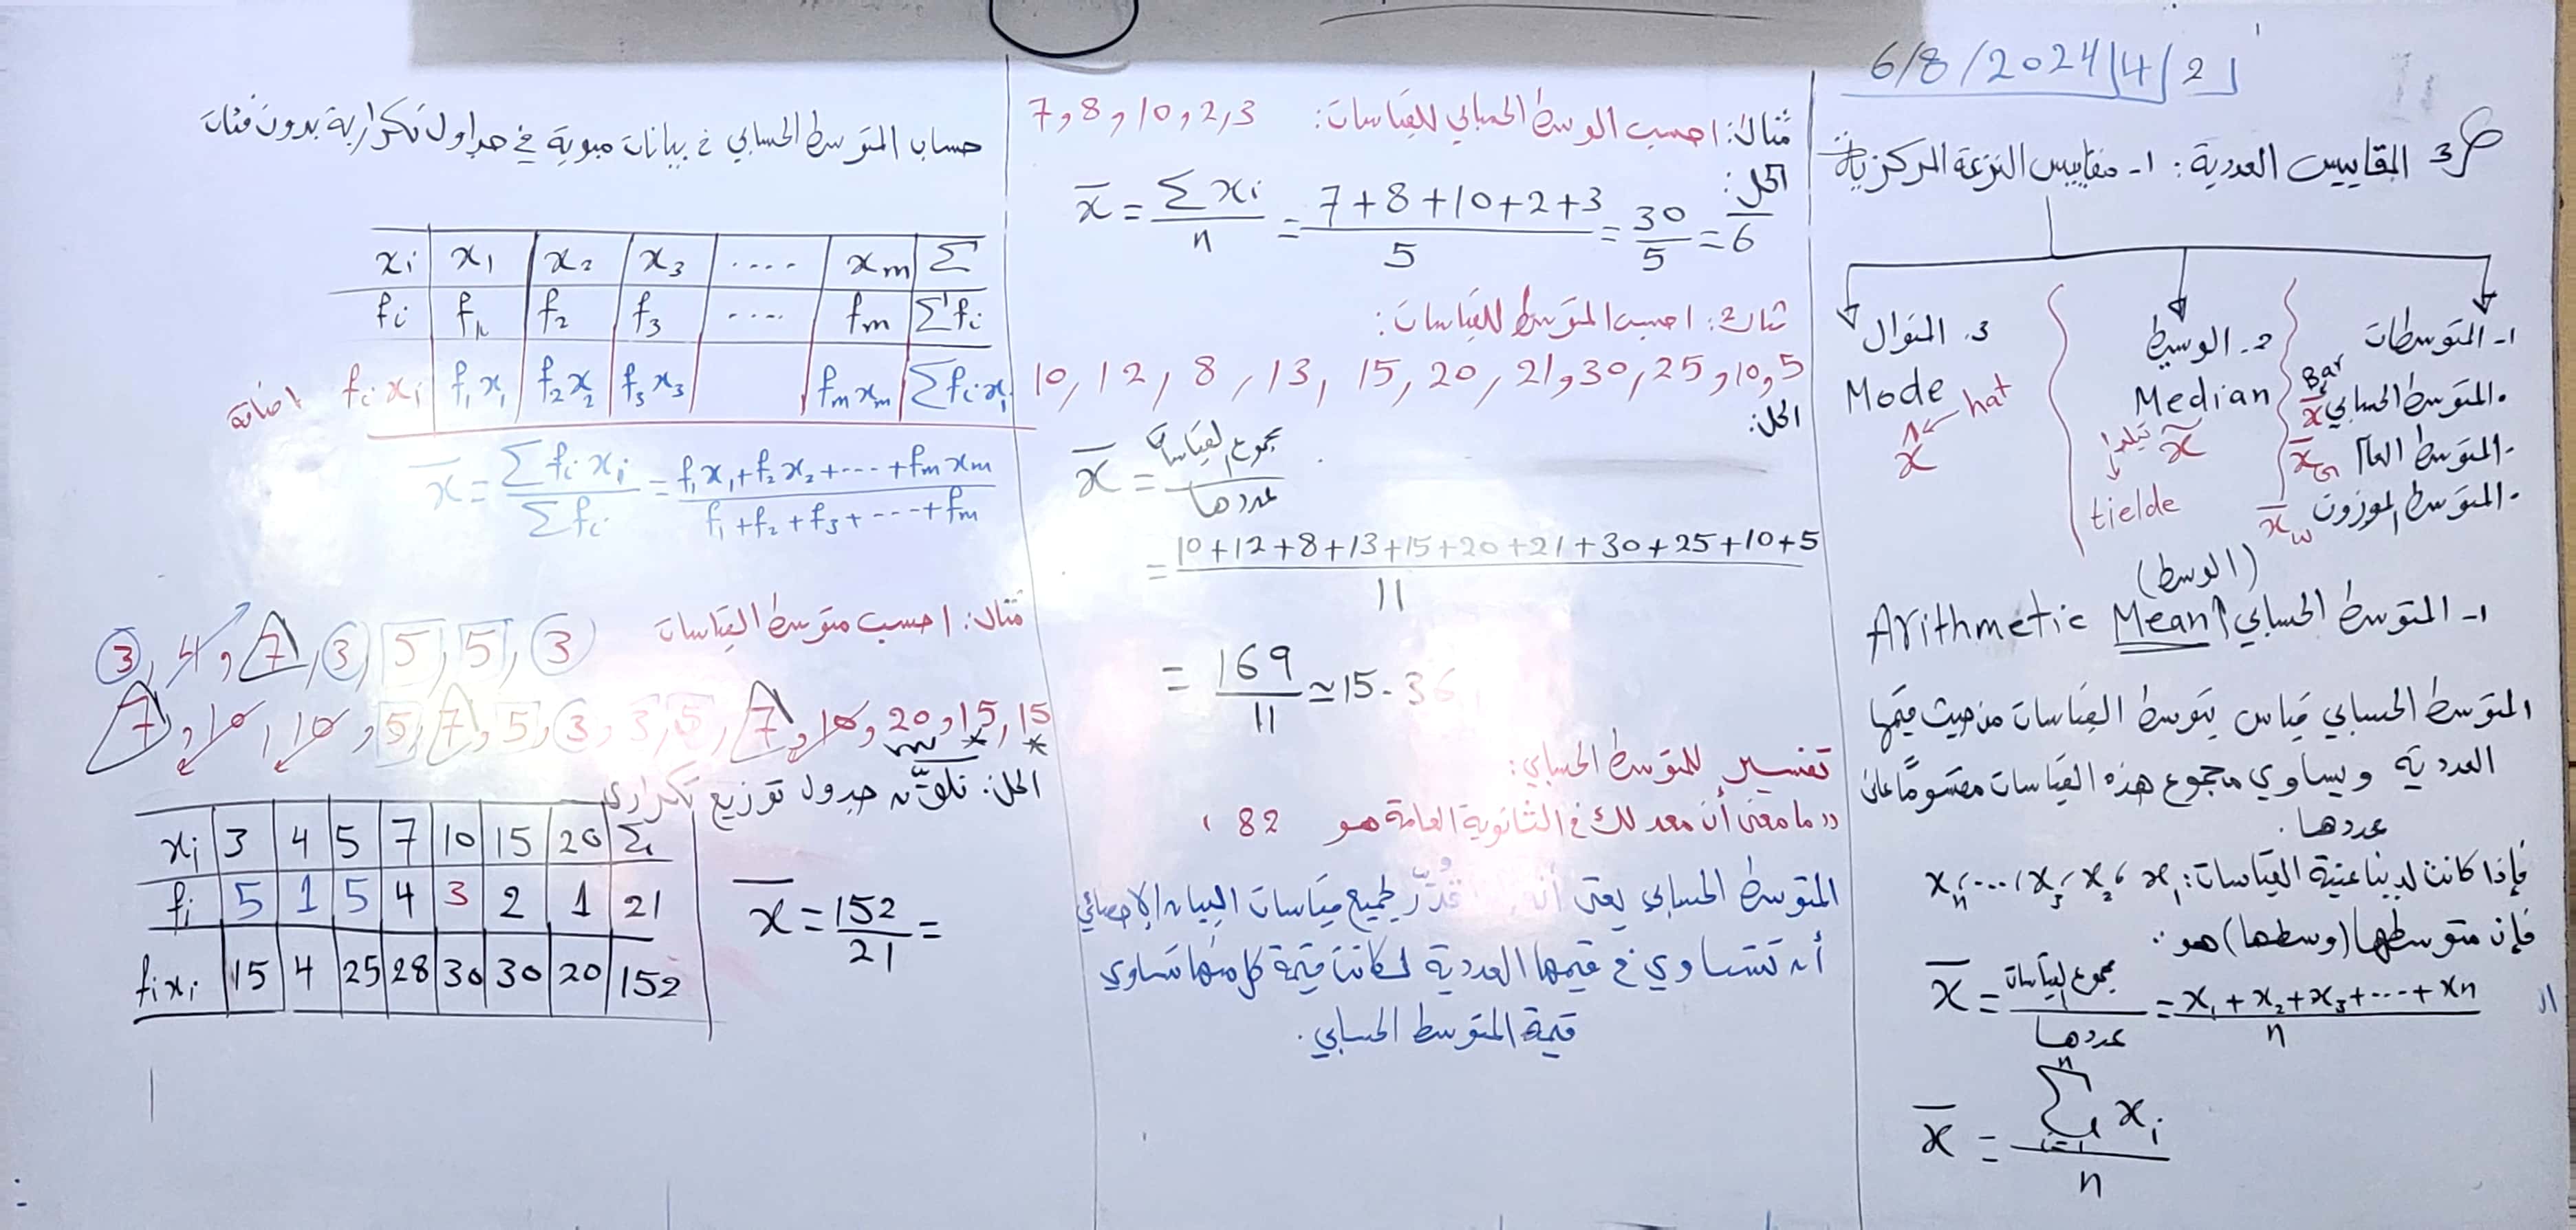 6/8/2024|4/2
3 المقاييس العددية: ١- مقاييس النزعة المركزية
١- المتوسطات
- المتوسط الحسابي x̄ Bar
- المتوسط العام x̄G
- المتوسط الموزون x̄w
2- الوسيط
Median
x̃ تيلدا
tielde
3. المنوال
Mode
x̂ hat
(الوسط)
١- المتوسط الحسابي Arithmetic Mean
المتوسط الحسابي قياس يتوسط القياسات من حيث قيمها
العددية ويساوي مجموع هذه القياسات مقسومًا على
عددها.
فإذا كانت لدينا عينة القياسات: x₁، x₂، x₃، ...، xₙ
فإن متوسطها (وسطها) هو:
x̄ = مجموع القياسات / عددها = x₁ + x₂ + x₃ + ... + xn / n
x̄ = Σ (i=1, n) xi / n
مثال: احسب الوسط الحسابي للقياسات: 7, 8, 10, 2, 3
الحل:
x̄ = Σ xi / n = 7 + 8 + 10 + 2 + 3 / 5 = 30 / 5 = 6
مثال2: احسب المتوسط للقياسات:
10, 12, 8, 13, 15, 20, 21, 30, 25, 10, 5
الحل:
x̄ = مجموع القياسات / عددها
= 10+12+8+13+15+20+21+30+25+10+5 / 11
= 169 / 11 ≃ 15.36
تفسير للمتوسط الحسابي:
"ما معنى أن معدلك في الثانوية العامة هو 82"
المتوسط الحسابي يعني أنه قُدّر لجميع قياسات البيان الإحصائي
أن تتساوى في قيمها العددية لكانت قيمة كل منها تساوي
قيمة المتوسط الحسابي.
حساب المتوسط الحسابي في بيانات مبوبة في جداول تكرارية بدون فئات
xi | x₁ | x₂ | x₃ | .... | xm | Σ
fi | f₁ | f₂ | f₃ | .... | fm | Σfi
اضافة fi xi | f₁x₁ | f₂x₂ | f₃x₃ | | fm xm | Σfi xi
x̄ = Σ fi xi / Σ fi = f₁x₁ + f₂x₂ + ... + fm xm / f₁ + f₂ + f₃ + ... + fm
مثال: احسب متوسط القياسات
3, 4, 7, 3, 5, 5, 3
7, 10, 10, 5, 7, 5, 3, 3, 5, 7, 10, 20, 15, 15
الحل: نكوّن جدول توزيع تكراري
xi | 3 | 4 | 5 | 7 | 10 | 15 | 20 | Σ
fi | 5 | 1 | 5 | 4 | 3 | 2 | 1 | 21
fixi | 15 | 4 | 25 | 28 | 30 | 30 | 20 | 152
x̄ = 152 / 21 =